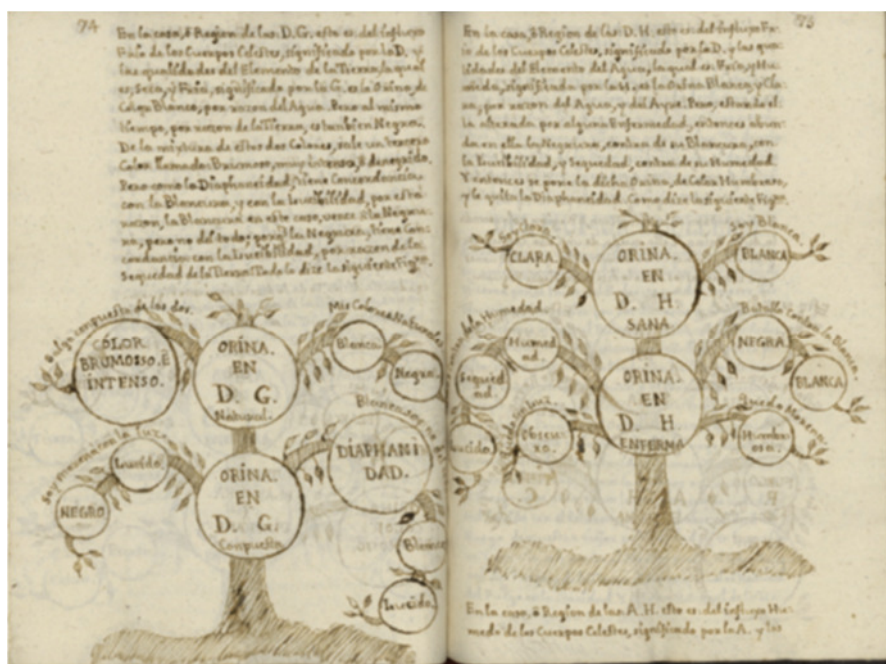 74
En la casa, ô Region de las D. G. esto es del influxo
Frio de los Cuerpos Celestes, significado por la D. y
las qualidades del Elemento de la Tierra, la qual
es, Seca, y Fria, significado por la G. es la Orina, de
Color Blanco, por razon del Agua. Pero al mismo
tiempo, por razon de la Tierra, es tambien Negra.
De la mixtura de estos dos Colores, sale un tercero
Color llamado Brumoso, muy intenso, ô denegrido.
Pero como la Diaphaneidad, tiene Concordancia
con la Blancura, y con la lucibilidad, por esta
razon, la Blancura en este caso, vence â la Negru-
ra, pero no del todo; la Negrura, tiene Con-
cordancia con la lucibilidad, por razon de la
Sequedad de la Tierra. Todo lo dize la siguiente Figra.
Salga compuesto de los dos.
COLOR
BRUMOSSO, Ê
INTENSO.
ORINA.
EN
D. G.
Natural.
Mis Colores Naturales
Blanco.
Negro.
Soy menor en la luz
Lucido.
NEGRO
ORINA.
EN
D. G.
Compuesta
DIAPHANI
DAD.
Blanco
Lucido.
75
En la casa, ô Region de las D. H. esto es del influxo Fri-
o de los Cuerpos Celestes, significado por la D. y las qua-
lidades del Elemento del Agua, la qual es Fria, y Hu-
meda, significada por la H. es la Orina Blanca, y Cla-
ra, por razon del Agua, y del Ayre. Pero, estando el-
la alterada por alguna Enfermedad, entonces abun-
da en ella la Negrura, contra de su Blancura, con
la lucibilidad, y Sequedad, contra de su Humedad.
Y entonces se pone la dicha Orina, de Color Humbroso,
y le quita la Diaphaneidad. Como dize la siguiente Figra.
Soy Clara
CLARA.
ORINA.
EN
D. H
SANA
Soy Blanca
BLANCA
la Humedad.
Humed
ad.
Sequed
ad.
Lucido.
Obscu
ro.
ORINA.
EN
D. H.
ENFERMA
Batallo con la Blanca.
NEGRA
BLANCA
Quedo Morena
Humbr
osa.
En la casa, ô Region de las A. H. esto es del influxo Hu-
medo de los Cuerpos Celestes, significado por la A. y las